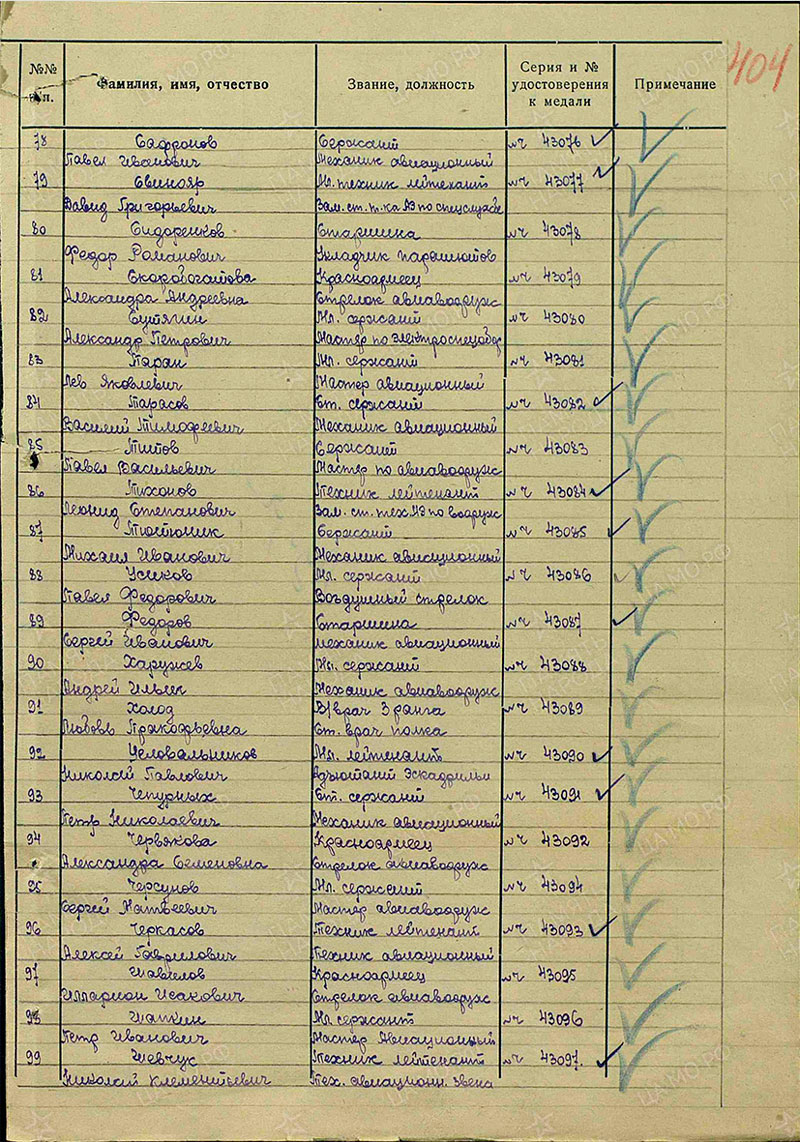 404
№№ п.п. Фамилия, имя, отчество Звание, должность Серия и № удостоверения к медали Примечание
78 Сафронов Сержант мч 43076
Павел Иванович Механик авиационный
79 Свинояр Мл. техник лейтенант мч 43077
Давид Григорьевич Зам. ст. т-ка АЭ по спецслужбе
80 Сидоренков Старшина мч 43078
Федор Романович Укладчик парашютов
81 Скоробогатова Красноармеец мч 43079
Александра Андреевна Стрелок авиавооруж
82 Сутягин Мл. сержант мч 43080
Александр Петрович Мастер по электроспецобор
83 Таран Мл. сержант мч 43081
Лев Яковлевич Мастер авиационный
84 Тарасов Ст. сержант мч 43082
Василий Тимофеевич Механик авиационный
85 Титов Сержант мч 43083
Павел Васильевич Мастер по авиавооруж
86 Тихонов Техник лейтенант мч 43084
Леонид Степанович Зам. ст. тех. АЭ по вооруж
87 Тютюник Сержант мч 43085
Михаил Иванович Механик авиационный
88 Усиков Мл. сержант мч 43086
Павел Федорович Воздушный стрелок
89 Федоров Старшина мч 43087
Сергей Иванович Механик авиационный
90 Харужев Мл. сержант мч 43088
Андрей Ильич Механик авиавооруж
91 Холод В/врач 3 ранга мч 43089
Любовь Прокофьевна Ст. врач полка
92 Целовальников Мл. лейтенант мч 43090
Николай Павлович Адъютант Эскадрильи
93 Чепурных Ст. сержант мч 43091
Петр Николаевич Механик авиационный
94 Червякова Красноармеец мч 43092
Александра Семеновна Стрелок авиавооруж
95 Черсунов Мл. сержант мч 43094
Сергей Матвеевич Мастер авиавооруж
96 Черкасов Техник лейтенант мч 43093
Алексей Гаврилович Техник авиационный
97 Шавилов Красноармеец мч 43095
Илларион Исакович Стрелок авиавооруж
98 Шапкин Мл сержант мч 43096
Петр Иванович Мастер Авиационный
99 Шевчук Техник лейтенант мч 43097.
Николай Клементьевич Тех. авиационн. звена
ЦАМО.РФ